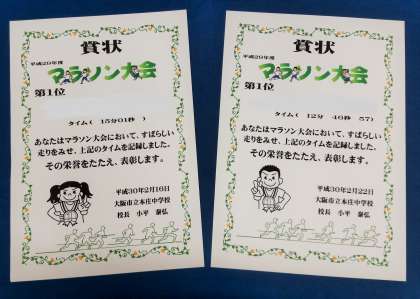 賞状
平成29年度
マラソン大会
第1位
タイム( 15分01秒 )
あなたはマラソン大会において、すばらしい
走りをみせ、上記のタイムを記録しました。
その栄誉をたたえ、表彰します。
平成30年2月16日
大阪市立本庄中学校
校長 小平 泰弘
賞状
平成29年度
マラソン大会
第1位
タイム( 12分 46秒 57)
あなたはマラソン大会において、すばらしい
走りをみせ、上記のタイムを記録しました。
その栄誉をたたえ、表彰します。
平成30年2月22日
大阪市立本庄中学校
校長 小平 泰弘